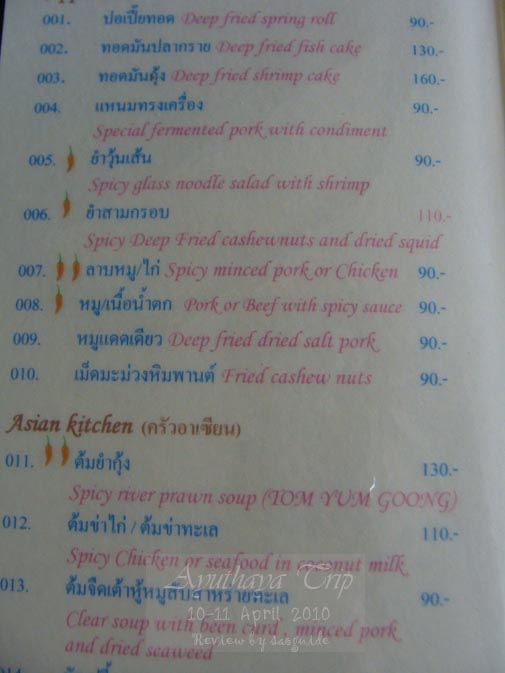 001. ปอเปี๊ยทอด Deep fried spring roll 90.-
002. ทอดมันปลากราย Deep fried fish cake 130.-
003. ทอดมันกุ้ง Deep fried shrimp cake 160.-
004. แหนมทรงเครื่อง 90.-
Special fermented pork with condiment
005. ยำวุ้นเส้น 90.-
Spicy glass noodle salad with shrimp
006. ยำสามกรอบ 110.-
Spicy Deep Fried cashewnuts and dried squid
007. ลาบหมู/ไก่ Spicy minced pork or Chicken 90.-
008. หมู/เนื้อน้ำตก Pork or Beef with spicy sauce 90.-
009. หมูแดดเดียว Deep fried dried salt pork 90.-
010. เม็ดมะม่วงหิมพานต์ Fried cashew nuts 90.-
Asian kitchen (ครัวอาเซียน)
011. ต้มยำกุ้ง 130.-
Spicy river prawn soup (TOM YUM GOONG)
012. ต้มข่าไก่ / ต้มข่าทะเล 110.-
Spicy Chicken or seafood in coconut milk
013. ต้มจืดเต้าหู้หมูสับสาหร่ายทะเล 90.-
Clear soup with been curd , minced pork
and dried seaweed
Ayuthaya Trip
10-11 April 2010
Review by sasguide